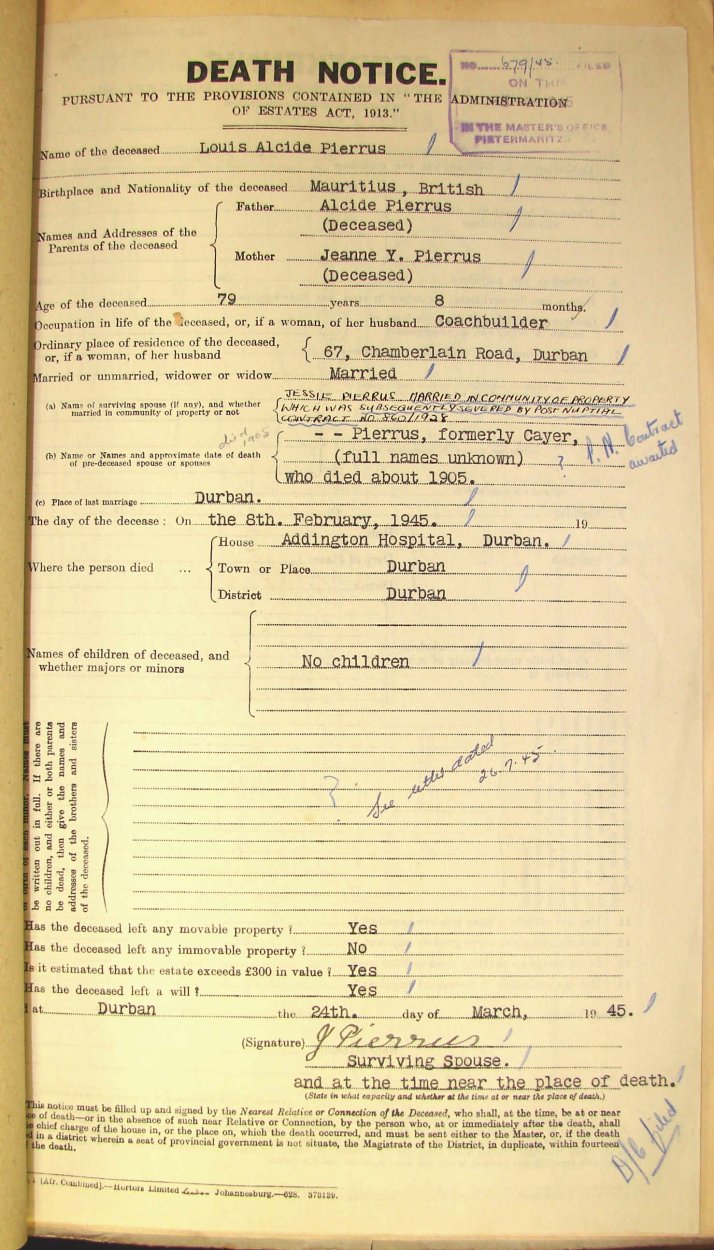 DEATH NOTICE.
NO. 679/45. FILED
ON THIS
IN THE MASTER'S OFFICE
PIETERMARITZ
PURSUANT TO THE PROVISIONS CONTAINED IN "THE ADMINISTRATION
OF ESTATES ACT, 1913."
Name of the deceased Louis Alcide Pierrus
Birthplace and Nationality of the deceased Mauritius, British
Names and Addresses of the Parents of the deceased
Father Alcide Pierrus
(Deceased)
Mother Jeanne Y. Pierrus
(Deceased)
Age of the deceased 79 years 8 months.
Occupation in life of the deceased, or, if a woman, of her husband Coachbuilder
Ordinary place of residence of the deceased,
or, if a woman, of her husband 67, Chamberlain Road, Durban
Married or unmarried, widower or widow Married
(a) Name of surviving spouse (if any), and whether
married in community of property or not
JESSIE PIERRUS MARRIED IN COMMUNITY OF PROPERTY
WHICH WAS SUBSEQUENTLY SEVERED BY POST NUPTIAL
CONTRACT NO 860/1928
died 1905
(b) Name or Names and approximate date of death
of pre-deceased spouse or spouses
- - Pierrus, formerly Cayer,
(full names unknown) ?
who died about 1905.
P.N. Contract
awaited
(c) Place of last marriage Durban.
The day of the decease: On the 8th. February, 1945. 19
Where the person died ...
House Addington Hospital, Durban.
Town or Place Durban
District Durban
Names of children of deceased, and
whether majors or minors
No children
be written out in full. If there are
no children, and either or both parents
be dead, then give the names and
addresses of the brothers and sisters
of the deceased.
? See letter dated
26.7.45.
Has the deceased left any movable property? Yes
Has the deceased left any immovable property? No
Is it estimated that the estate exceeds £300 in value? Yes
Has the deceased left a will? Yes
at Durban the 24th. day of March, 19 45.
(Signature) J Pierrus
Surviving Spouse.
and at the time near the place of death.
(State in what capacity and whether at the time at or near the place of death.)
This notice must be filled up and signed by the Nearest Relative or Connection of the Deceased, who shall, at the time, be at or near
of death—or in the absence of such near Relative or Connection, by the person who, at or immediately after the death, shall
chief charge of the house in, or the place on, which the death occurred, and must be sent either to the Master, or, if the death
in a district wherein a seat of provincial government is not situate, the Magistrate of the District, in duplicate, within fourteen
the death.
D/C filed
(Afr. Combined).—Hortors Limited Johannesburg.—628. 373139.